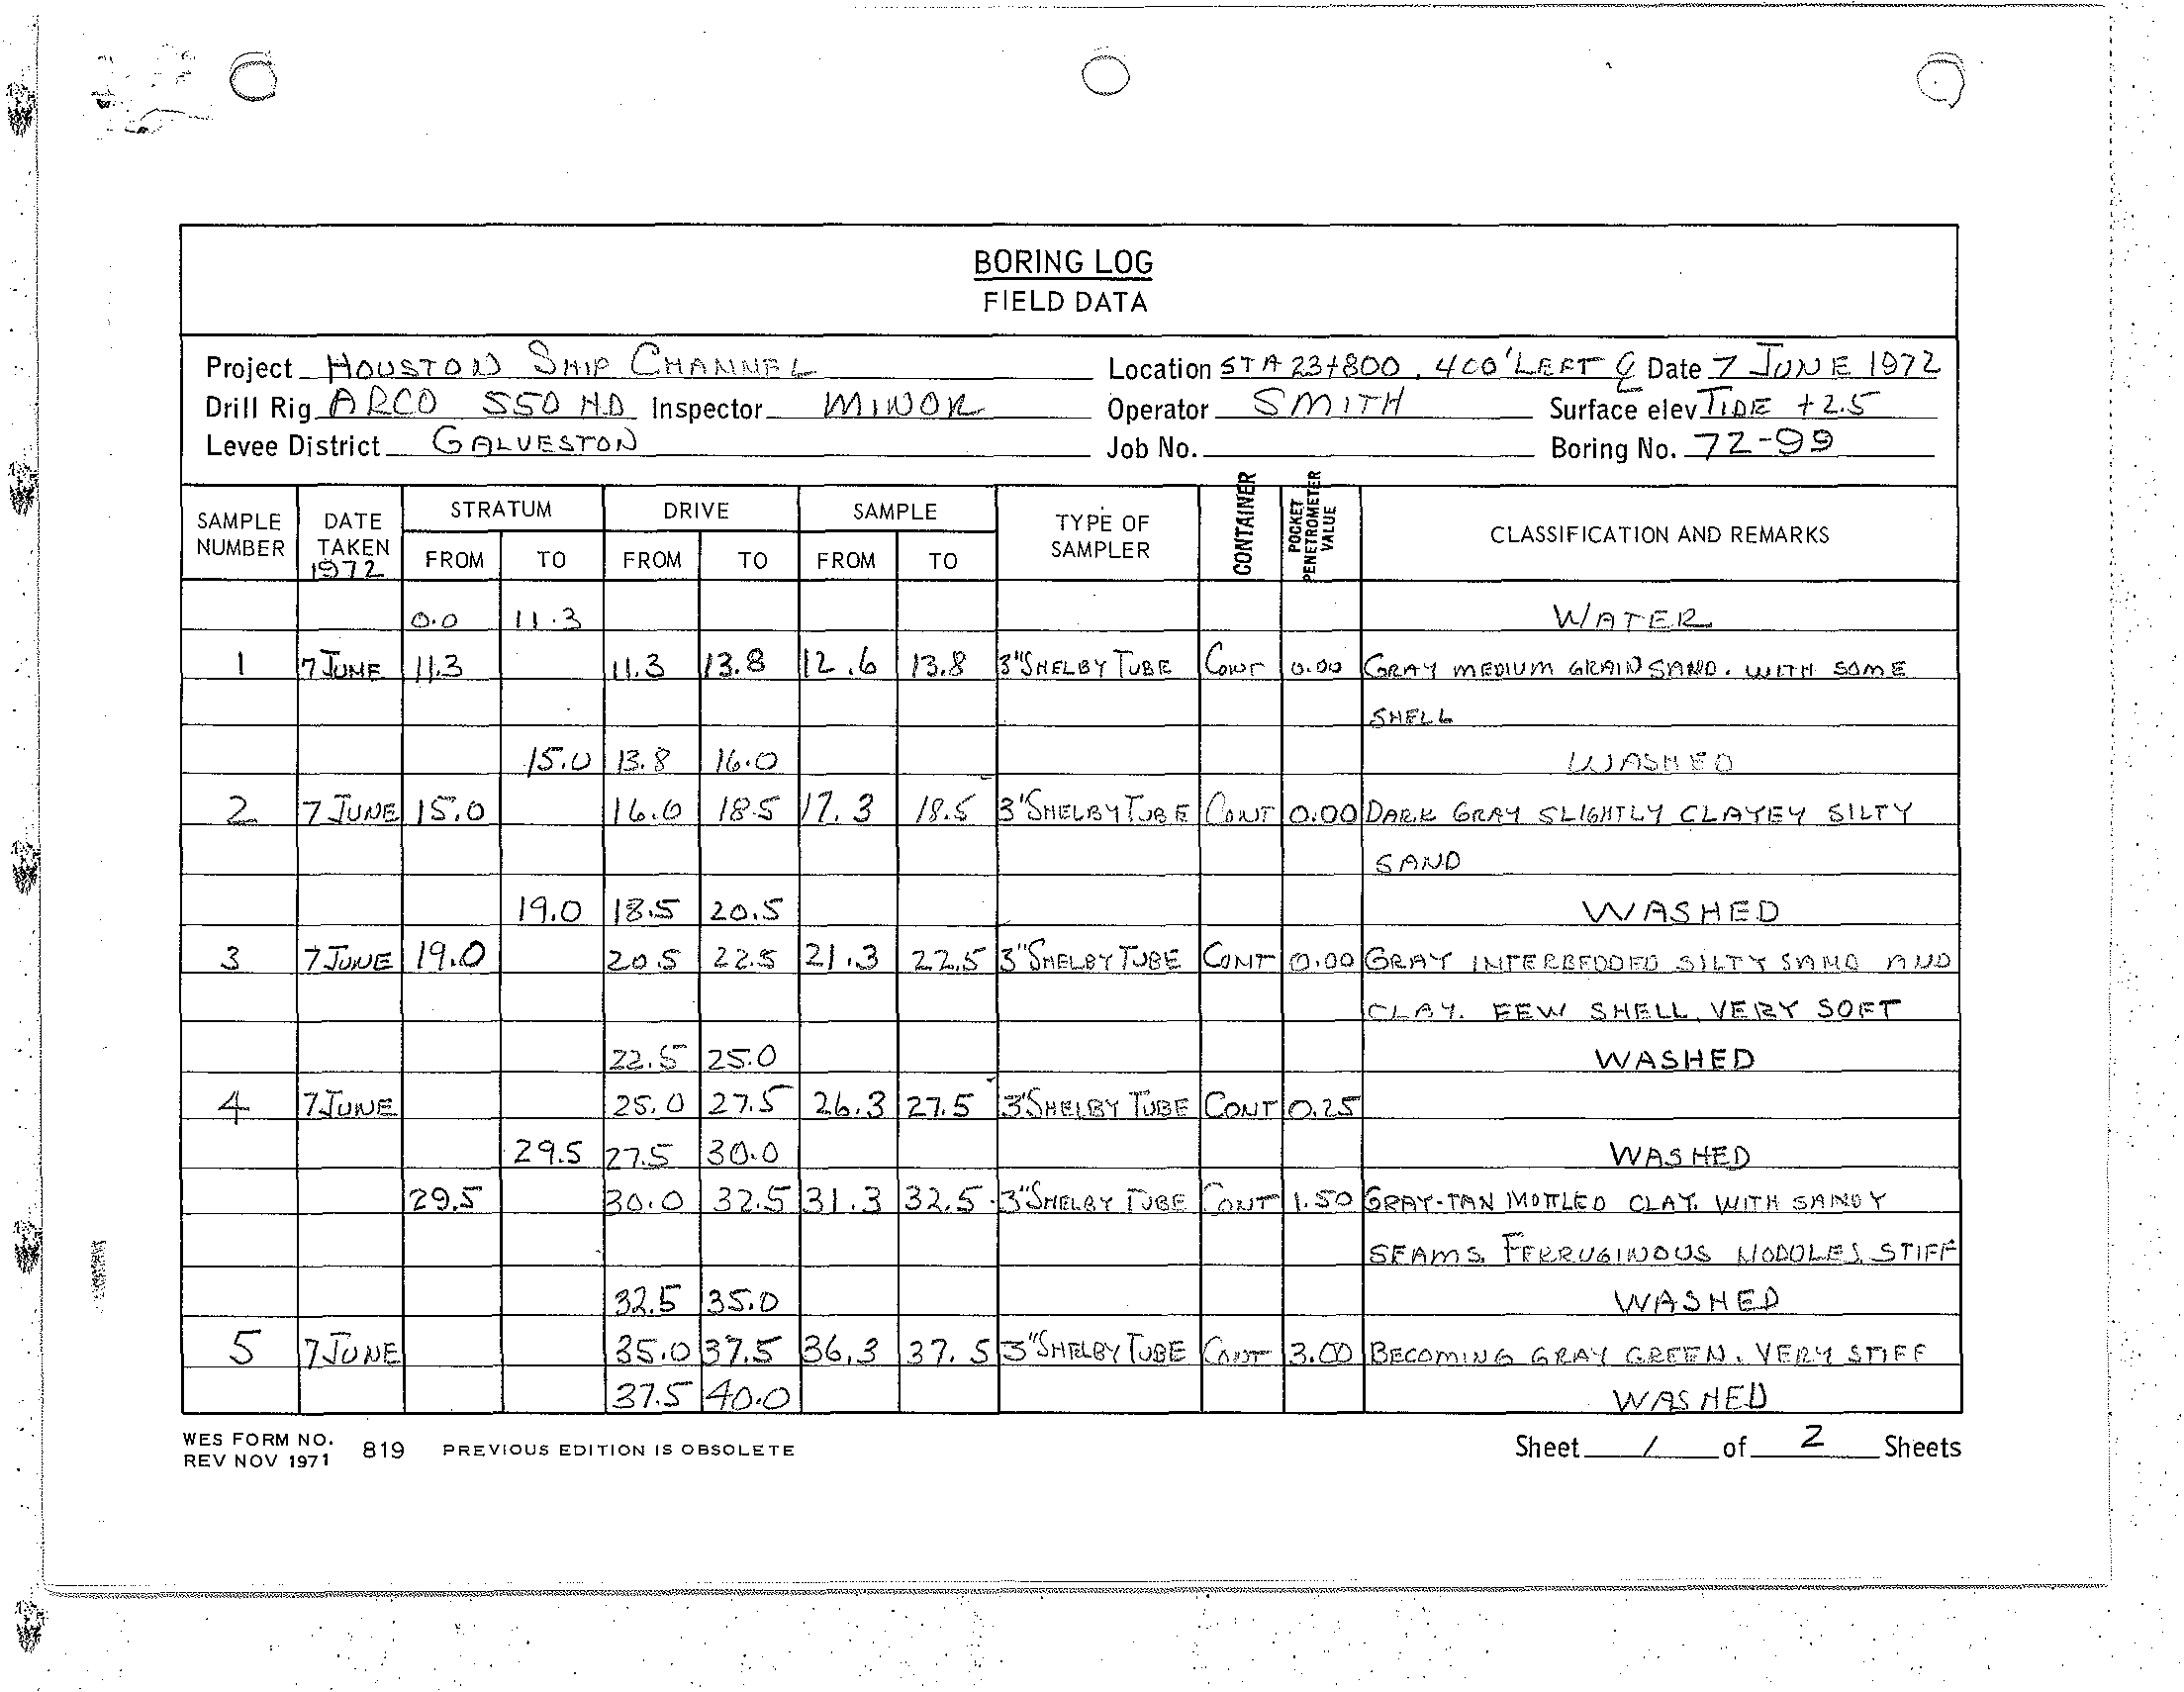 BORING LOG
FIELD DATA
Project HOUSTON SHIP CHANNEL Location STA 23+800, 400' LEFT ℄ Date 7 JUNE 1972
Drill Rig ARCO 550 H.D. Inspector MINOR Operator SMITH Surface elev TIDE +2.5
Levee District GALVESTON Job No. Boring No. 72-99
SAMPLE NUMBER DATE TAKEN 1972 STRATUM FROM TO DRIVE FROM TO SAMPLE FROM TO TYPE OF SAMPLER CONTAINER POCKET PENETROMETER VALUE CLASSIFICATION AND REMARKS
0.0 11.3 WATER
1 7 JUNE 11.3 11.3 13.8 12.6 13.8 3" SHELBY TUBE CONT 0.00 GRAY MEDIUM GRAIN SAND. WITH SOME
SHELL
15.0 13.8 16.0 WASHED
2 7 JUNE 15.0 16.0 18.5 17.3 18.5 3" SHELBY TUBE CONT 0.00 DARK GRAY SLIGHTLY CLAYEY SILTY
SAND
19.0 18.5 20.5 WASHED
3 7 JUNE 19.0 20.5 22.5 21.3 22.5 3" SHELBY TUBE CONT 0.00 GRAY INTERBEDDED SILTY SAND AND
CLAY. FEW SHELL, VERY SOFT
22.5 25.0 WASHED
4 7 JUNE 25.0 27.5 26.3 27.5 3" SHELBY TUBE CONT 0.25
29.5 27.5 30.0 WASHED
29.5 30.0 32.5 31.3 32.5 3" SHELBY TUBE CONT 1.50 GRAY-TAN MOTTLED CLAY. WITH SANDY
SEAMS. FERRUGINOUS NODULES, STIFF
32.5 35.0 WASHED
5 7 JUNE 35.0 37.5 36.3 37.5 3" SHELBY TUBE CONT 3.00 BECOMING GRAY GREEN. VERY STIFF
37.5 40.0 WASHED
WES FORM NO. 819 PREVIOUS EDITION IS OBSOLETE Sheet 1 of 2 Sheets
REV NOV 1971